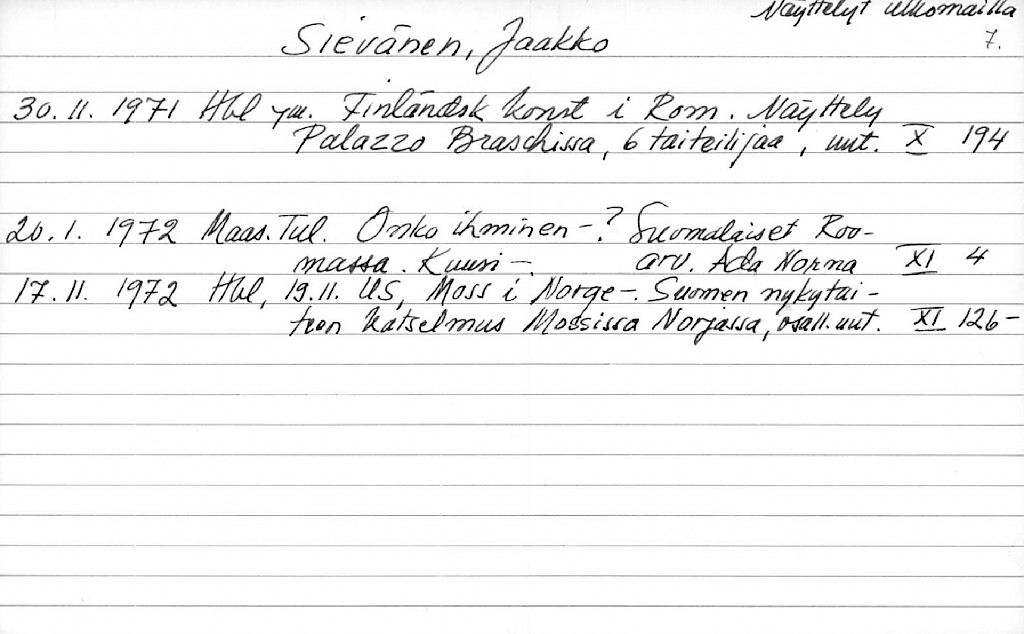 Näyttelyt ulkomailla
7.
Sievänen, Jaakko
30.11. 1971 Hbl ym. Finländsk konst i Rom. Näyttely
Palazzo Braschissa, 6 taiteilijaa, uut. X 194
20.1. 1972 Maas.Tul. Onko ihminen-? Suomalaiset Roo-
massa. Kuusi-. arv. Ada Norna XI 4
17.11. 1972 Hbl, 19.11. US, Moss i Norge-. Suomen nykytai-
teen katselmus Mossissa Norjassa, osall. uut. XI 126-